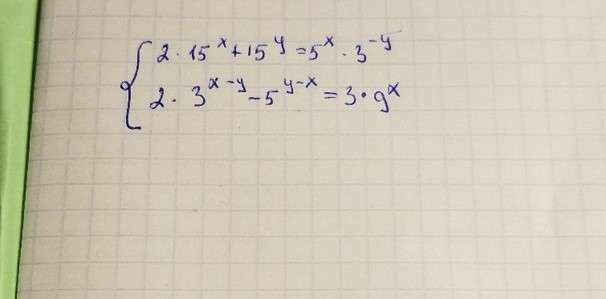 2 · 15^x + 15^y = 5^x · 3^-y
2 · 3^x-y - 5^y-x = 3 · 9^x